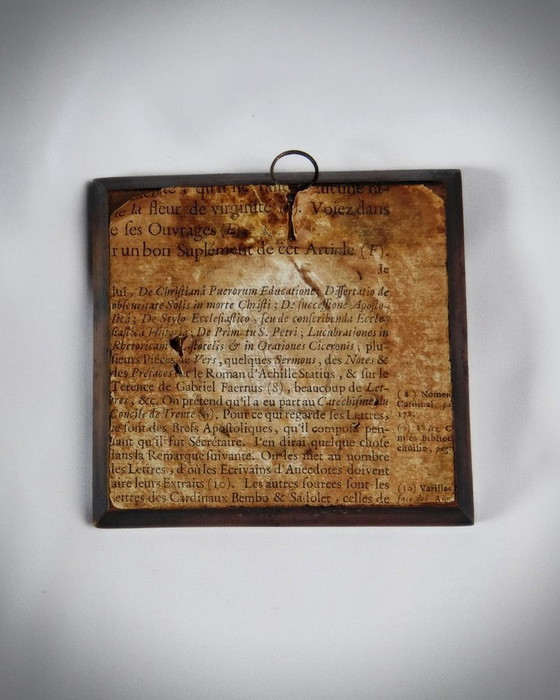 la fleur de virginité Voiez dans
e ses Ouvrages (E)
r un bon Suplément de cet Article (F).
Je
lui, De Christianâ Puerorum Educatione, Dissertatio de
obscuritate Solis in morte Christi; De successione Aposto-
licâ; De Stylo Ecclesiastico, seu de conscribenda Eccle-
siastica Historia; De Primatu S. Petri; Lucubrationes in
Rhetoricam & in Orationes Ciceronis, plu-
sieurs Pieces de Vers, quelques Sermons, des Notes &
des Préfaces le Roman d'Achille Statius, & sur le
Térence de Gabriel Faernus (8), beaucoup de Let-
tres, &c. On prétend qu'il a eu part au Catechisme du
Concile de Trente (9). Pour ce qui regarde ses Lettres,
ce sont des Brefs Apostoliques, qu'il composa pen-
dant qu'il fut Sécrétaire. J'en dirai quelque chose
dans la Remarque suivante. On les met au nombre
les Lettres, d'où les Ecrivains d'Anecdotes doivent
aire leurs Extraits (10). Les autres sources sont les
ettres des Cardinaux Bembo & Sadolet, celles de
(8) Nomen
Cardinal. pa
172.
(9)
Bibliot
choisie, pag
(10) Varillas